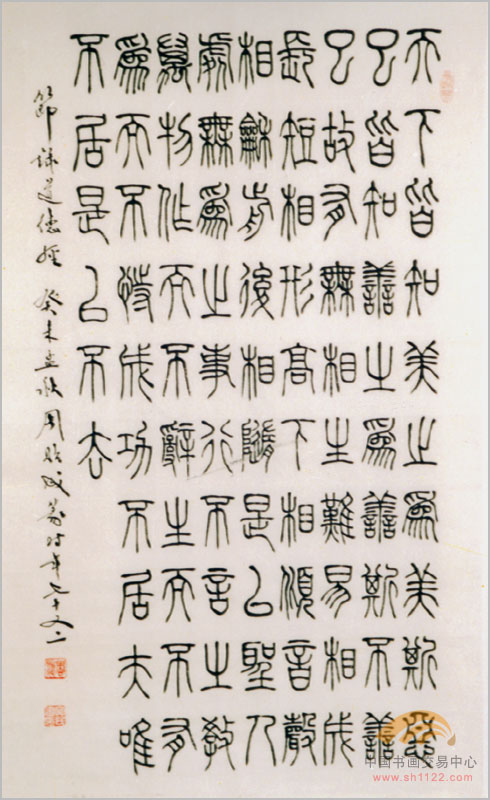 天下皆知美之為美斯惡
已皆知善之為善斯不善
已故有無相生難易相成
長短相形高下相傾音聲
相龢前後相隨是以聖人
處無為之事行不言之教
萬物作而不辭生而不有
為而不恃成功不居夫唯
不居是以不去
節錄道德經 癸未孟秋周成篆时年七十又二
中国书画交易中心
www.sh1122.com